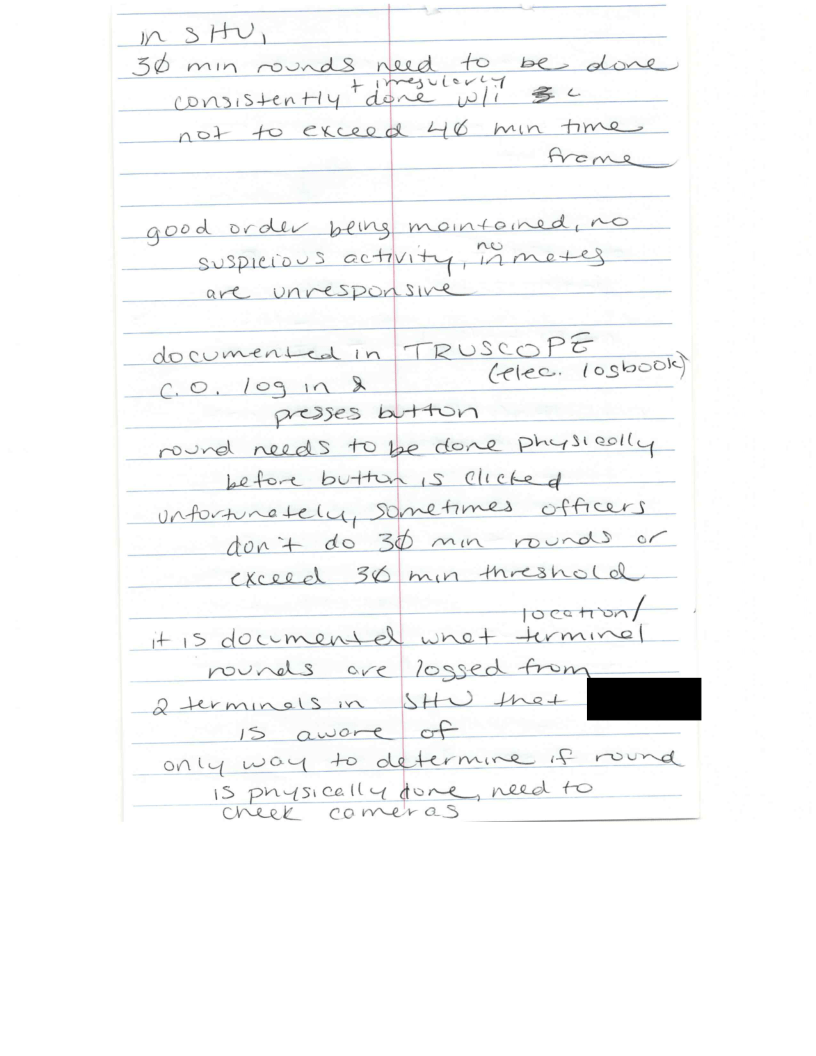 in SHU,
30 min rounds need to be done
+ irregularly
consistently done w/i
not to exceed 40 min time
frame
good order being maintained, no
suspicious activity, no inmates
are unresponsive
documented in TRUSCOPE
(elec. logbook)
C.O. log in &
presses button
round needs to be done physically
before button is clicked
unfortunately, sometimes officers
don't do 30 min rounds or
exceed 30 min threshold
location/
it is documented what terminal
rounds are logged from
2 terminals in SHU that
is aware of
only way to determine if round
is physically done, need to
check cameras